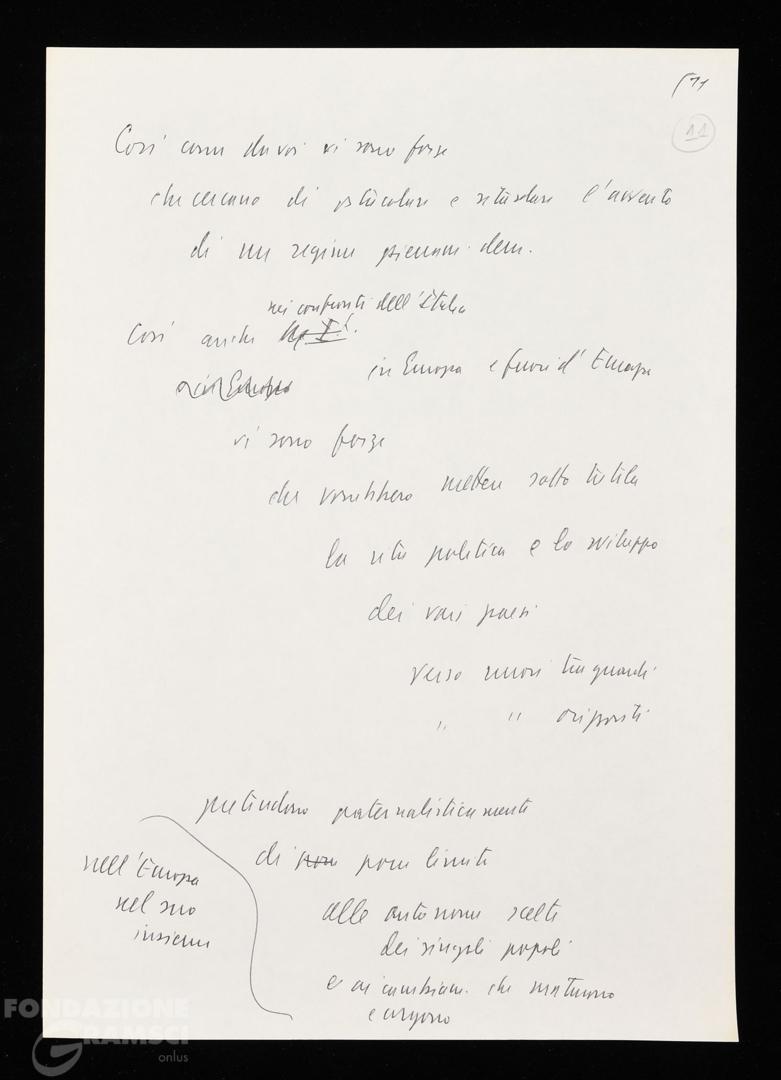 11
Così come da voi vi sono forze
che cercano di ostacolare e ritardare l'avvento
di un regime pienam. dem.
nei confronti dell'Italia
Così anche
in Europa
in Europa e fuori d'Europa
vi sono forze
che vorrebbero mettere sotto tutela
la vita politica e lo sviluppo
dei vari paesi
verso nuovi traguardi
" "
pretendono paternalisticamente
di non porre limiti
nell'Europa
nel suo
insieme
alle autonome scelte
dei singoli popoli
e ai cambiam. che maturano
e urgono
FONDAZIONE
GRAMSCI
onlus